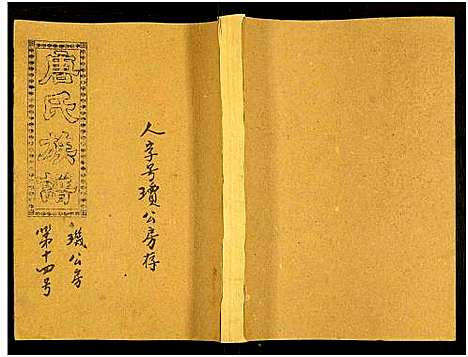 人字号寳公房存
唐氏族譜
璣公房
第十四号